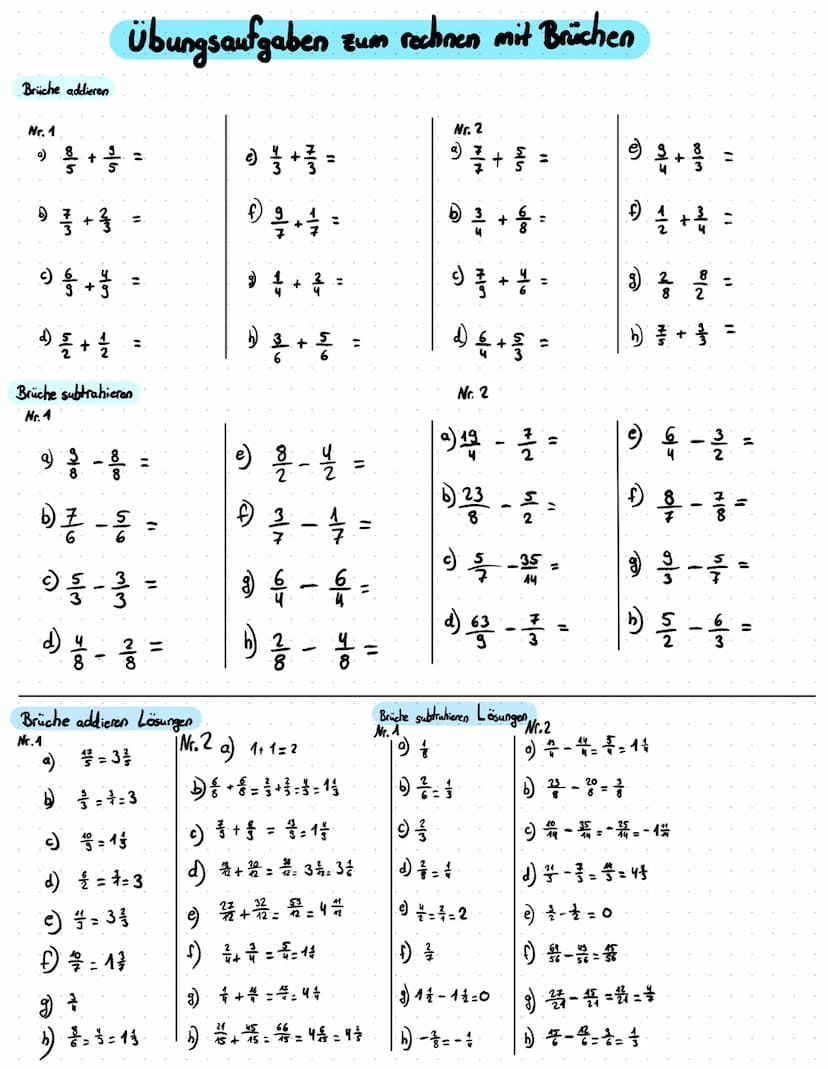 Übungsaufgaben zum rechnen mit Brüchen
Brüche addieren
Nr. 1
a) 8/5 + 9/5 =
b) 7/3 + 2/3 =
c) 6/9 + 4/9 =
d) 5/2 + 1/2 =
e) 4/3 + 7/3 =
f) 9/7 + 1/7 =
g) 1/4 + 2/4 =
h) 3/6 + 5/6 =
Nr. 2
a) 7/7 + 5/5 =
b) 3/4 + 6/8 =
c) 7/9 + 4/6 =
d) 6/4 + 5/3 =
e) 9/4 + 8/3 =
f) 1/2 + 3/4 =
g) 2/8 8/2 =
h) 7/5 + 9/3 =
Brüche subtrahieren
Nr. 1
a) 9/8 - 8/8 =
b) 7/6 - 5/6 =
c) 5/3 - 3/3 =
d) 4/8 - 2/8 =
e) 8/2 - 4/2 =
f) 3/7 - 1/7 =
g) 6/4 - 6/4 =
h) 2/8 - 4/8 =
Nr. 2
a) 19/4 - 7/2 =
b) 23/8 - 5/2 =
c) 5/7 - 35/14 =
d) 63/9 - 7/3 =
e) 6/4 - 3/2 =
f) 8/7 - 7/8 =
g) 9/3 - 5/7 =
h) 5/2 - 6/3 =
Brüche addieren Lösungen
Nr. 1
a) 17/5 = 3 2/5
b) 9/3 = 3/1 = 3
c) 10/9 = 1 1/9
d) 6/2 = 3/1 = 3
e) 11/3 = 3 2/3
f) 10/7 = 1 3/7
g) 3/4
h) 8/6 = 4/3 = 1 1/3
Nr. 2
a) 1 + 1 = 2
b) 6/8 + 6/8 = 2/3 + 2/3 = 4/3 = 1 1/3
c) 7/9 + 6/9 = 13/9 = 1 4/9
d) 18/12 + 20/12 = 38/12 = 3 2/12 = 3 1/6
e) 27/12 + 32/12 = 59/12 = 4 11/12
f) 2/4 + 3/4 = 5/4 = 1 1/4
g) 1/4 + 16/4 = 17/4 = 4 1/4
h) 21/15 + 45/15 = 66/15 = 4 6/15 = 4 2/5
Brüche subtrahieren Lösungen
Nr. 1
a) 1/8
b) 2/6 = 1/3
c) 2/3
d) 2/8 = 1/4
e) 4/2 = 2/1 = 2
f) 2/7
g) 1 1/2 - 1 1/2 = 0
h) - 2/8 = - 1/4
Nr. 2
a) 19/4 - 14/4 = 5/4 = 1 1/4
b) 23/8 - 20/8 = 3/8
c) 10/14 - 35/14 = - 25/14 = - 1 11/14
d) 21/3 - 7/3 = 14/3 = 4 2/3
e) 3/2 - 3/2 = 0
f) 64/56 - 49/56 = 15/56
g) 27/21 - 15/21 = 12/21 = 4/7
h) 15/6 - 12/6 = 3/6 = 1/3